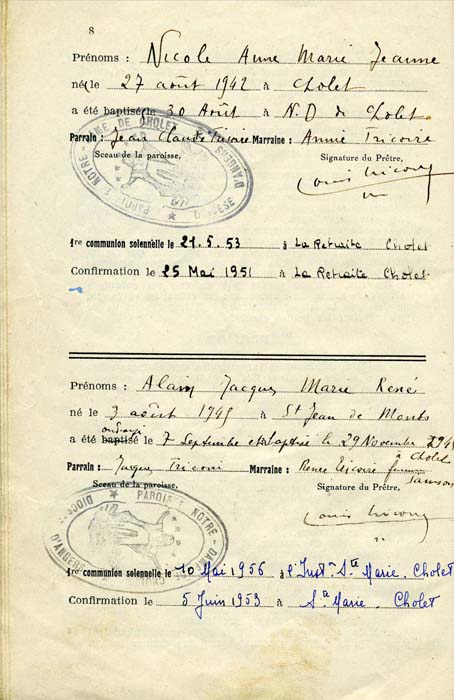 8
Prénoms : Nicole Anne Marie Jeanne
né le 27 août 1942 à Cholet
a été baptisé le 30 Août à N.D de Cholet
Parrain : Jean Claude Marraine : Annie Tricoire
Sceau de la paroisse, Signature du Prêtre,
PAROISSE NOTRE DAME DE CHOLET DIOCÈSE D'ANGERS
Louis Tricoire
1re communion solennelle le 21.5.53 à La Retraite Cholet
Confirmation le 25 Mai 1951 à La Retraite Cholet
Prénoms : Alain Jacques Marie René
né le 3 août 1945 à St Jean de Monts
ondoyé
a été baptisé le 7 Septembre et baptisé le 29 Novembre 1945
à Cholet
Parrain : Jacques Tricoire Marraine : Renée Tricoire
Samson
Sceau de la paroisse, Signature du Prêtre,
PAROISSE NOTRE-DAME DE CHOLET DIOCÈSE D'ANGERS
Louis Tricoire
1re communion solennelle le 10 Mai 1956 à l'Instn Ste Marie. Cholet
Confirmation le 5 Juin 1953 à Ste Marie. Cholet